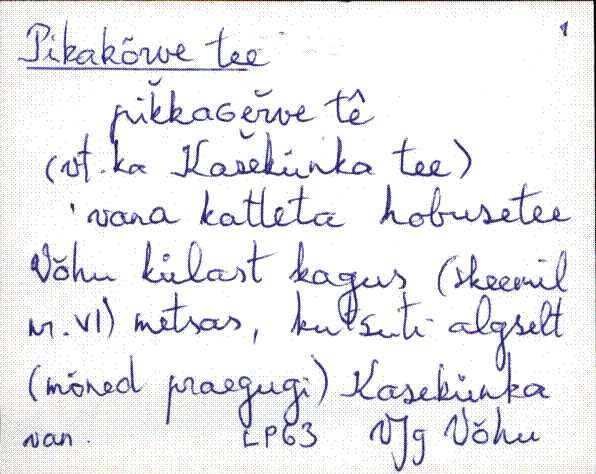 1
Pikakõrve tee
pikkaGěrve tê
(vt. ka Kasekünka tee)
vana katteta hobusetee
Võhu külast kagus (skeemil
nr. VI) metsas, kutsuti algselt
(mõned praegugi) Kasekünka
van. LP63 VJg Võhu